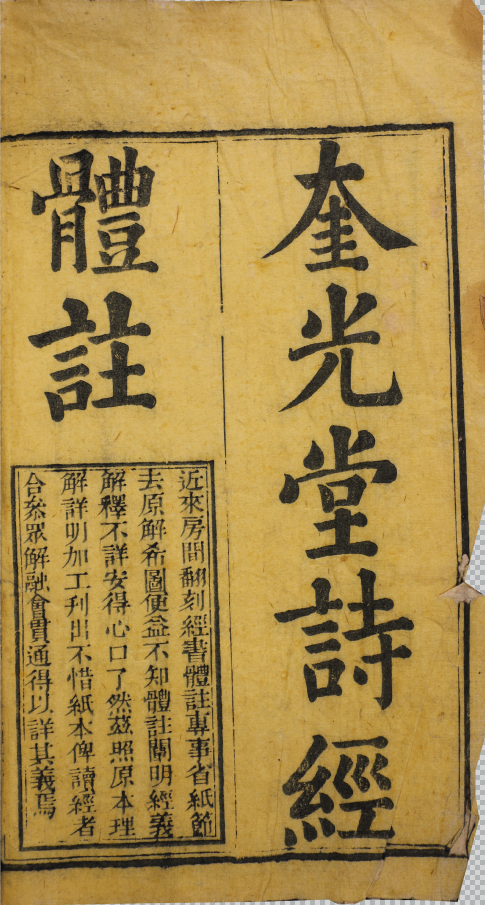 奎光堂詩經
體註
近來房間翻刻經書體註專事省紙節
去原解希圖便益不知體註闡明經義
解釋不詳安得心口了然茲照原本理
解詳明加工刋出不惜紙本俾讀經者
合叅眾解融會貫通得以詳其義焉